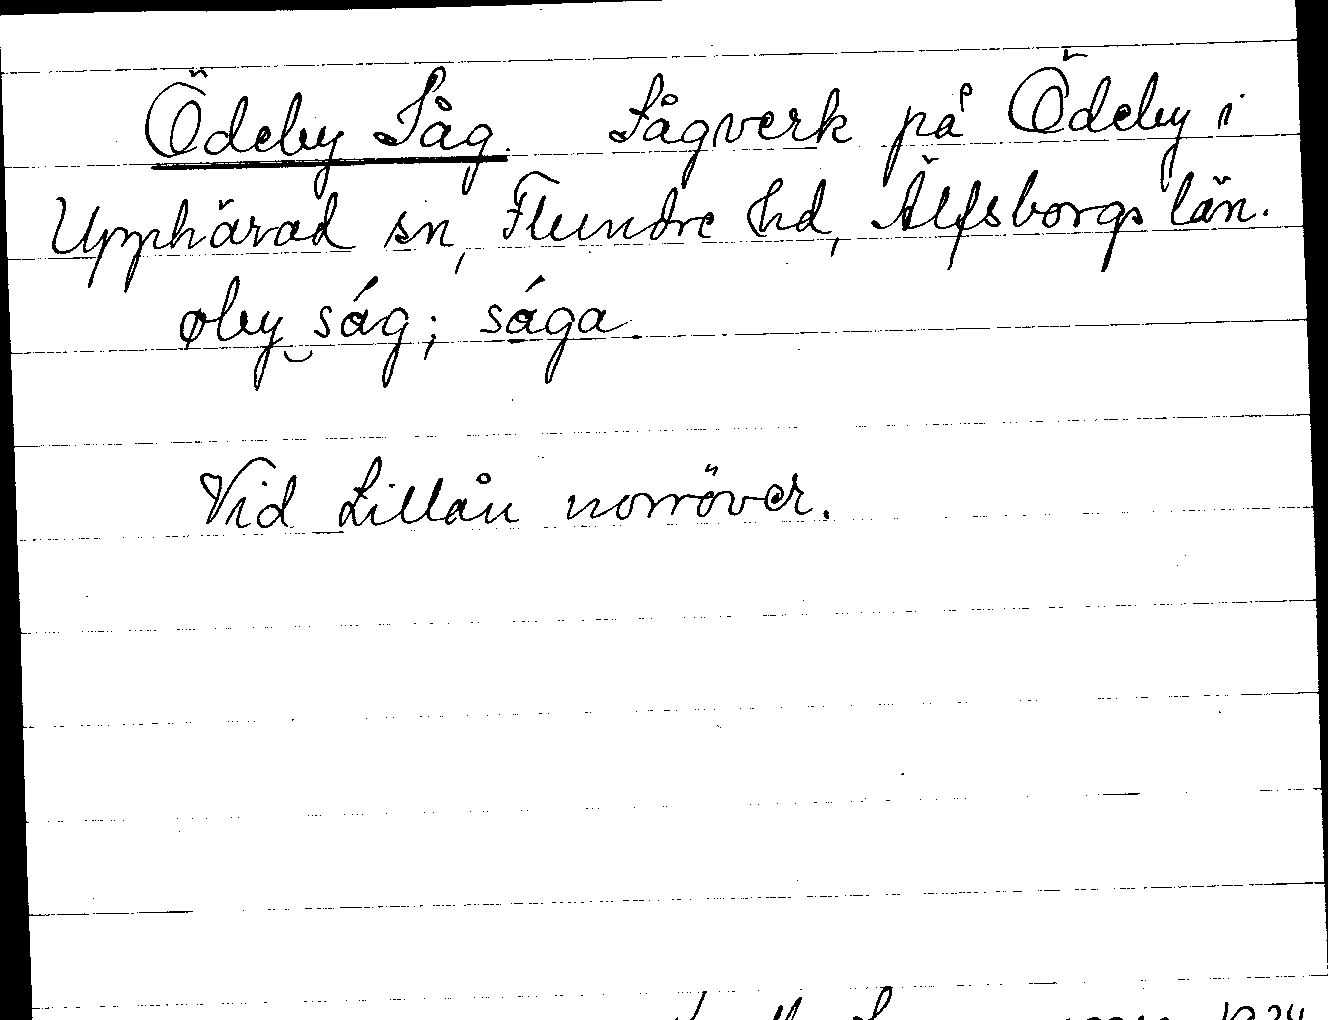 Ödeby Såg. Sågverk på Ödeby i
Upphärad sn, Flundre hd, Älfsborgs län.
øby ság; sága.
Vid Lillån norröver.